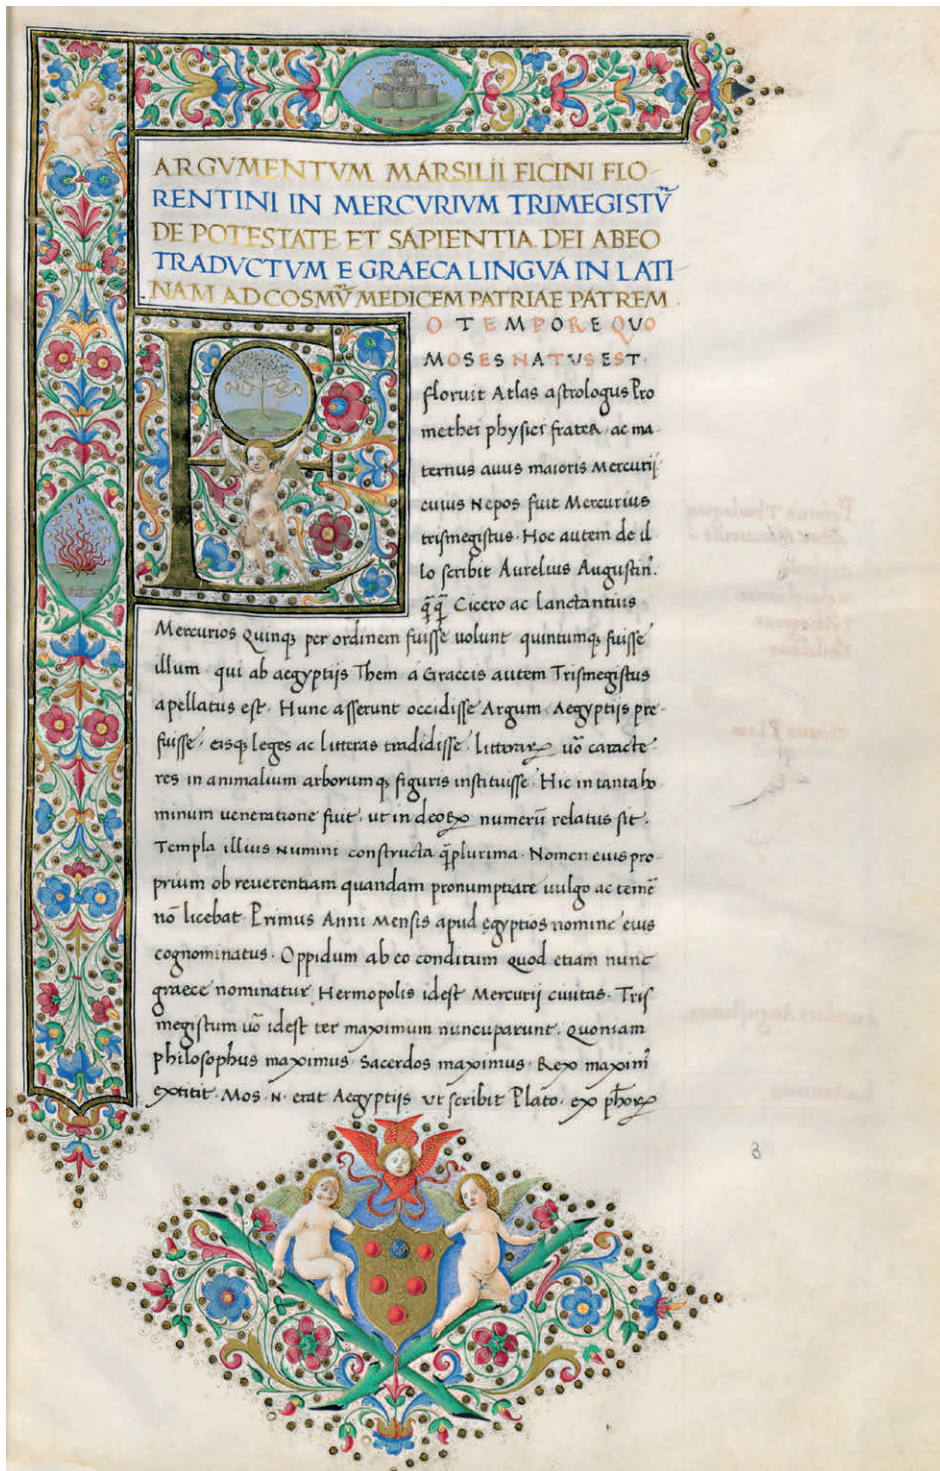 ARGVMENTVM MARSILII FICINI FLO-
RENTINI IN MERCVRIVM TRIMEGISTV̄
DE POTESTATE ET SAPIENTIA DEI AB EO
TRADVCTVM E GRAECA LINGVA IN LATI-
NAM AD COSMV̄ MEDICEM PATRIAE PATREM.
EO TEMPORE QVO
MOSES NATVS EST.
floruit Atlas astrologus Pro
methei physici frater. ac ma-
ternus auus maioris Mercurij
cuius Nepos fuit Mercurius
trismegistus. Hoc autem de il-
lo scribit Aurelius Augustin.
q̄q̄ Cicero ac Lanctantius
Mercurios Quinq; per ordinem fuisse uolunt quintumq; fuisse
illum. qui ab aegyptijs Them. á Graecis autem Trismegistus
apellatus est. Hunc asserunt occidisse Argum. Aegyptijs pre-
fuisse. eisq; leges ac litteras tradidisse. litterarꝝ uō caracte-
res in animalium arborumq; figuris instituisse. Hic in tanta ho-
minum ueneratione fuit. ut in deorꝝ numerū relatus sit.
Templa illius Numini constructa q̄plurima. Nomen eius pro-
prium ob reuerentiam quandam pronumptiare uulgo ac temē
nō licebat. Primus Anni Mensis apud egyptios nomine eius
cognominatus. Oppidum ab eo conditum quod etiam nunc
graece nominatur Hermopolis idest Mercurij ciuitas. Tris
megistum uō idest ter maximum nuncuparunt. Quoniam
philosophus maximus. Sacerdos maximus. Rex maxim̄
extitit. Mos .n. erat Aegyptijs ut scribit Plato. ex ph̄orꝝ
3